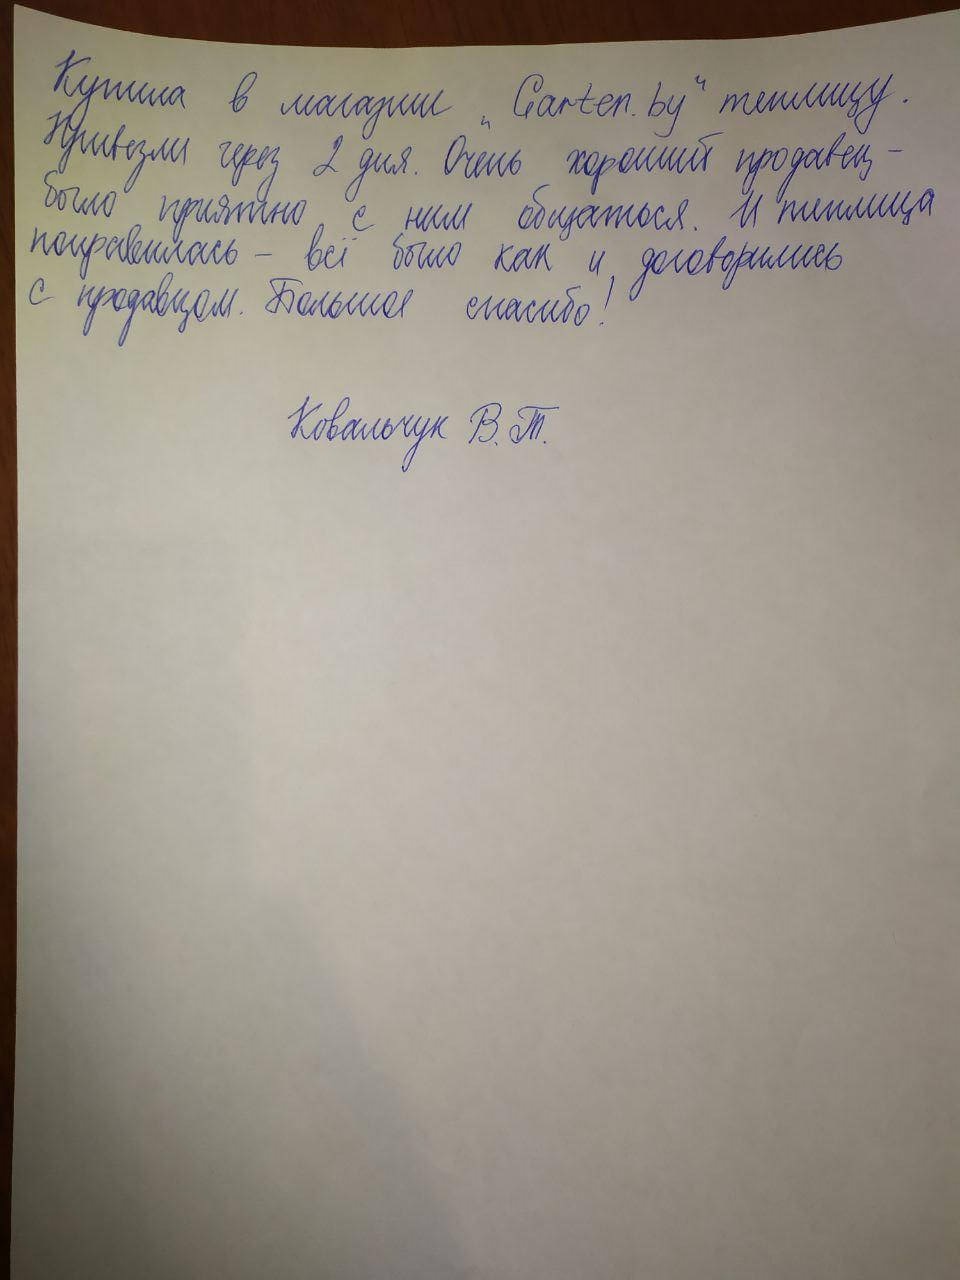 Купила в магазине „Garten.by" теплицу.
Привезли через 2 дня. Очень хороший продавец –
было приятно с ним общаться. И теплица
понравилась – всё было как и договорились
с продавцом. Большое спасибо!
Ковальчук В.Т.